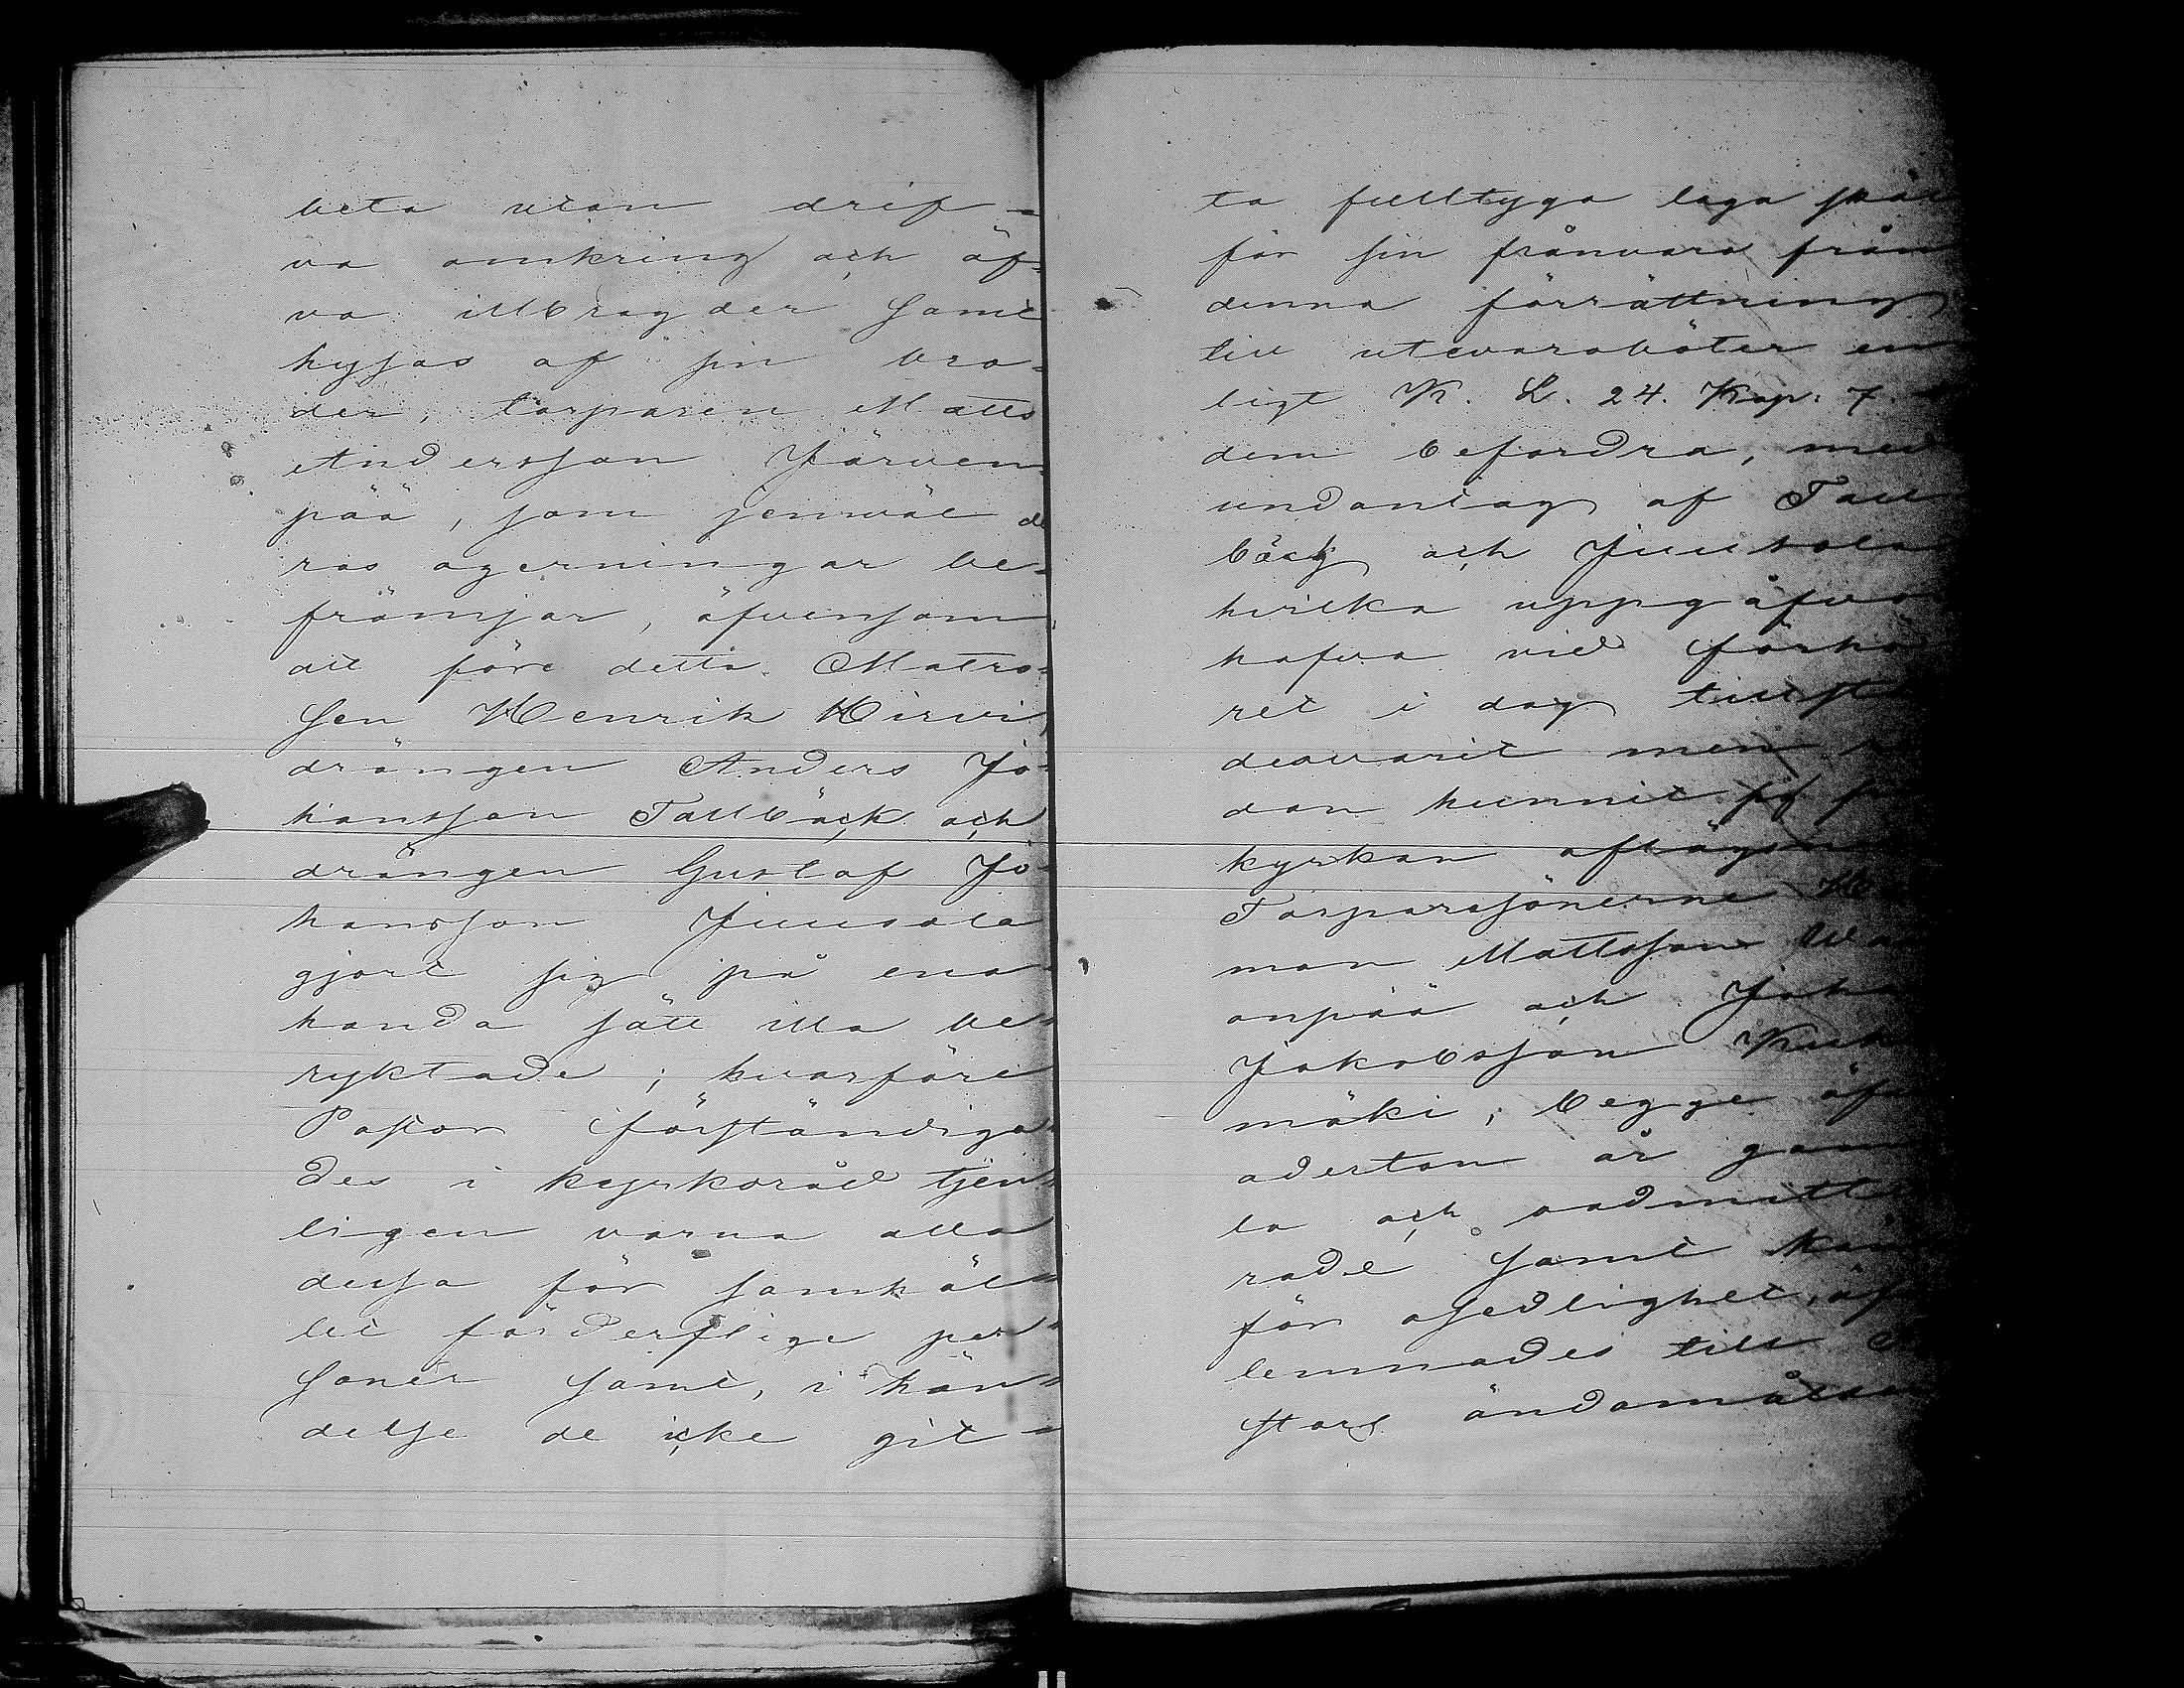 beta utan drif-
va omkring och öf-
va illbragder samt
hysas af sin bro-
der, torparen Matts
Andersson Järven-
pää, som jemväl de
ras ogerningar be-
främjar, äfvensom
att före detta Matro-
sen Henrik Hirvi,
drängen Anders Jo-
hansson Tallbäck och
drängen Gustaf Jo-
hansson Juusola
gjort sig på ena-
handa sätt illa be-
ryktade; hvarföre
Pastor förständiga-
des i kyrkoråd tjen-
ligen varna alla
dessa för samhäl-
let förderflige per-
soner samt, i hän-
delse de icke git-
ta fulltyga laga skäl
för sin frånvaro från
denna förrättning
till utevaroböter en
ligt K. L. 24. Kap. 7.
dem befordra, med
undantag af Tall
bäck och Juusola
hvilka uppgåfvo
hafva vid förhö
ret i dag tillst
desvarit men
dan hunnit
kyrkan aflägsna
Torparesönerne
man Mattsson
anpää och Joh
Jakobsson
mäki, begge öfv
aderton år gam
la och oadmitte
rade samt kän
för osedlighet, öf
lemnades till
stors ändamåls